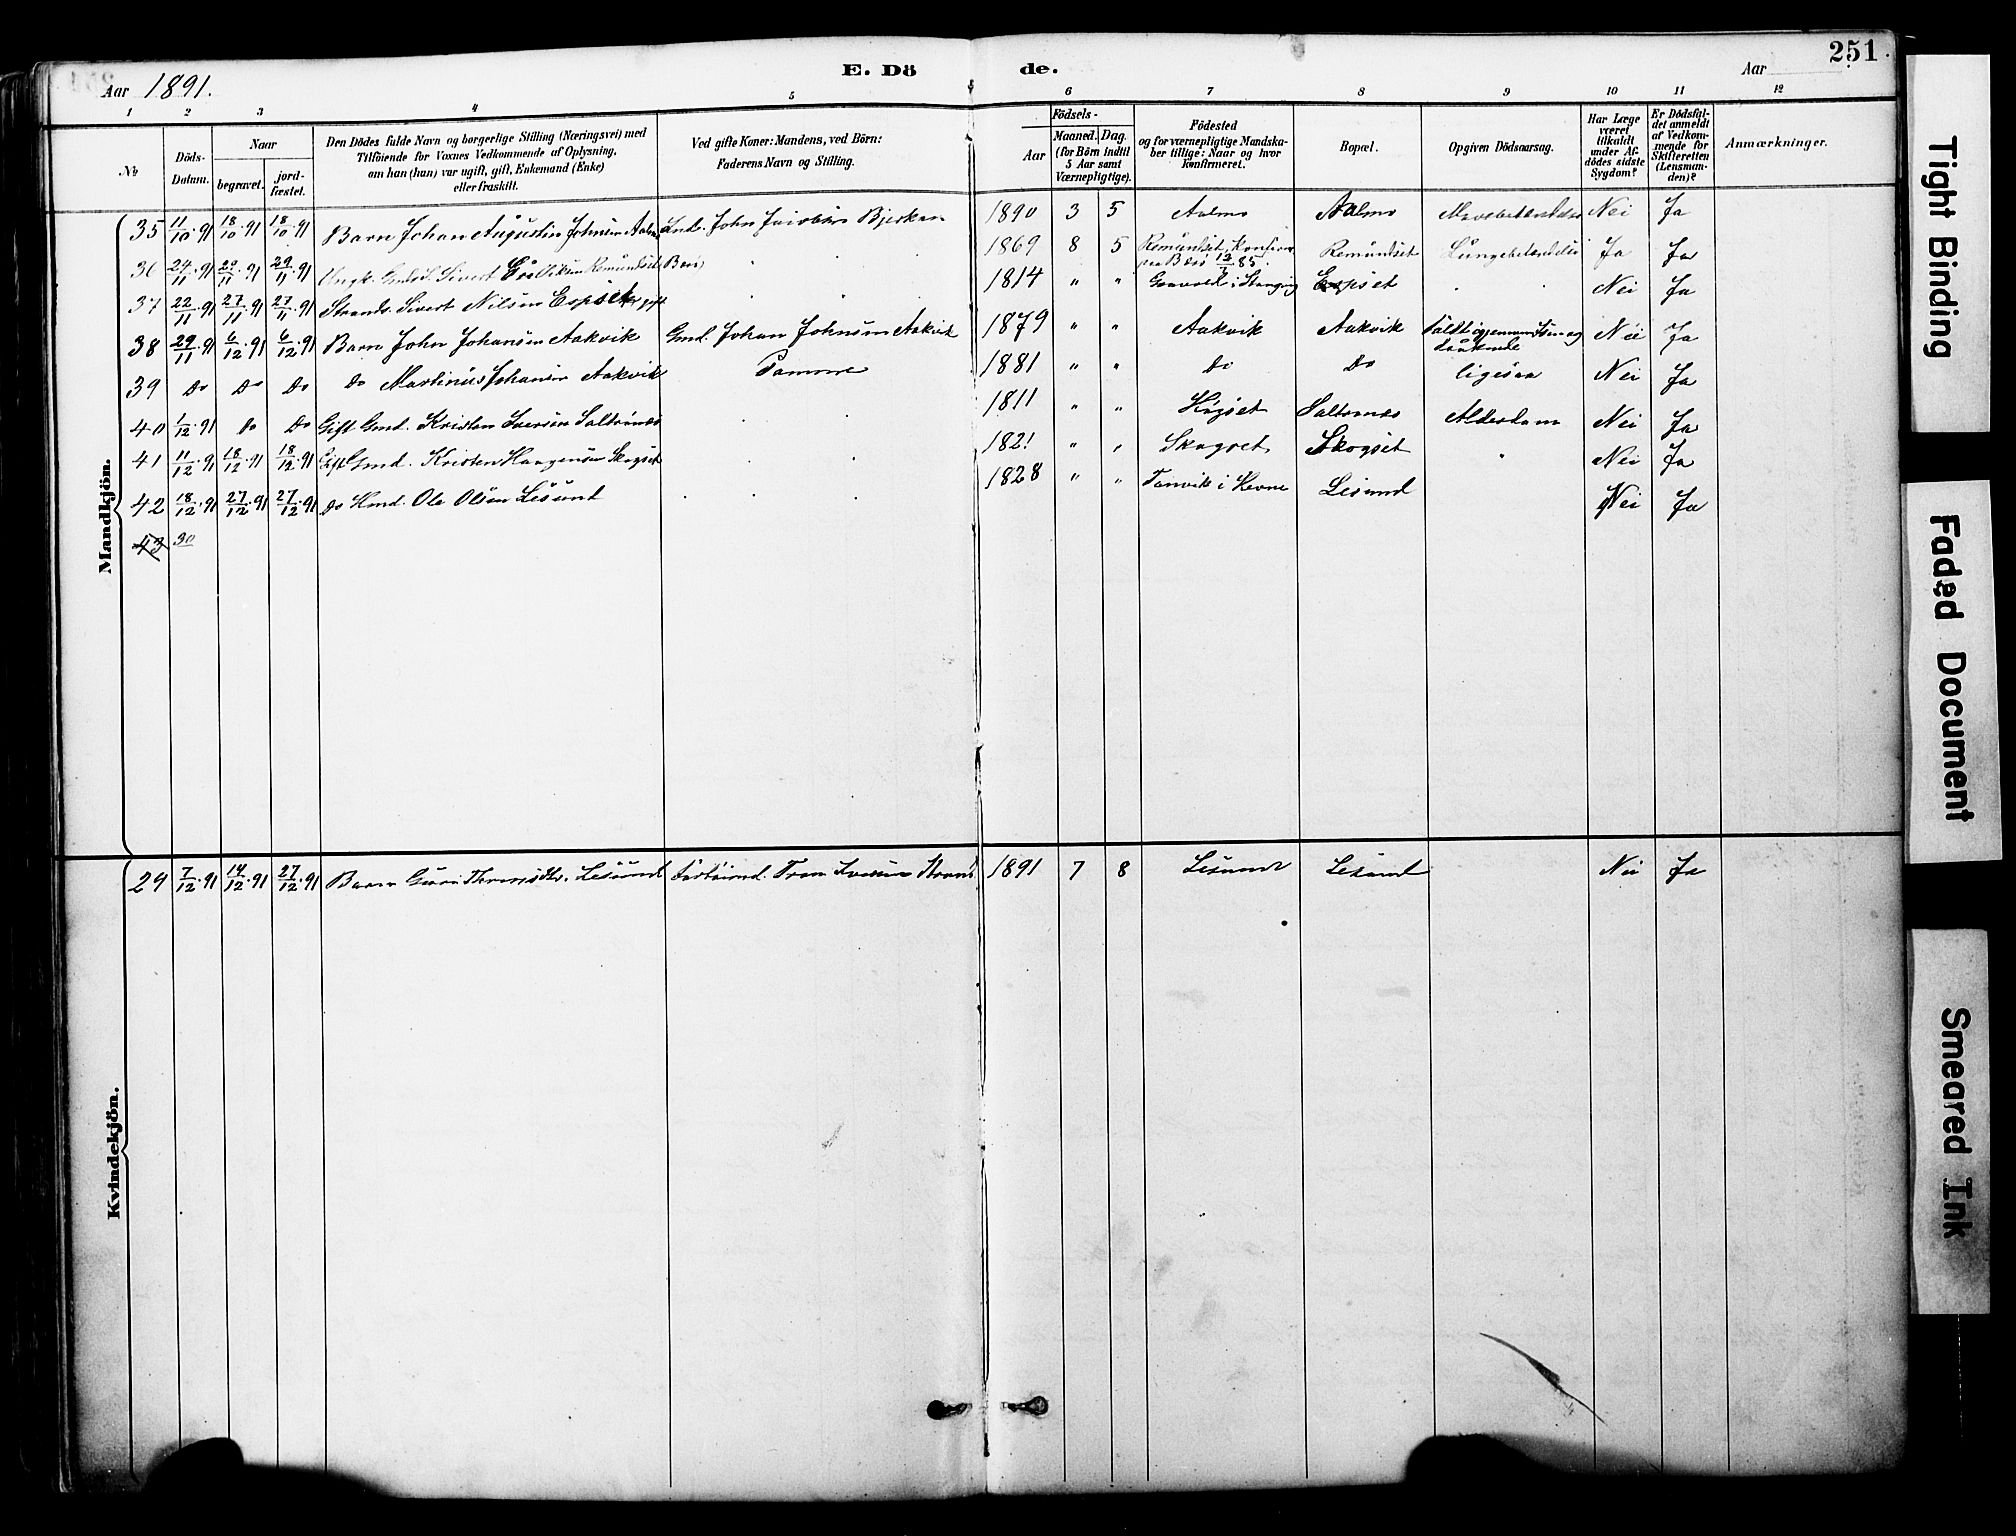 251
E. Dö de.
Aar 1891. Aar
1 2 3 4 5 6 7 8 9 10 11 12
No
Döds-Datum.
Naar
begravet.
jordfæstet.
Den Dödes fulde Navn og borgerlige Stilling (Næringsvei) med
Tilföiende for Voxnes Vedkommende af Oplysning,
om han (hun) var ugift, gift, Enkemand (Enke)
eller fraskilt.
Ved gifte Koner: Mandens, ved Börn:
Faderens Navn og Stilling.
Födsels-
Aar
Maaned. Dag.
(for Börn indtil
5 Aar samt
Værnepligtige).
Födested
og for værnepligtige Mandskaber tillige: Naar og hvor
konfirmeret.
Bopæl.
Opgiven Dödsaarsag.
Har Læge
været
tilkaldt
under Afdödes sidste
Sygdom?
Er Dödsfaldet anmeldt
af Vedkommende for
Skifteretten
(Lensmanden)?
Anmærkninger.
Mandkjön.
35 11/10.91 18/10.91 18/10.91 Barn Johan Augustin Johnsen Aalmo Inds. John Jacobsen Bjerkan 1890 3 5 Aalmo Aalmo Nei Ja
36 24/11.91 29/11.91 29/11.91 Ungk. Gmds. Sivert Remundset 1869 8 5 Remundset, Konfirm. 12/7 85. Remundset Lungebetændelse Ja Ja
37 22/11.91 27/11.91 27/11.91 Strands. Sivert Nilsen Espset gift 1814 " " i Stangvig Espset Nei Ja
38 29/11.91 6/12.91 6/12.91 Barn John Johansen Aakvik Gmd. Johan Johnsen Aakvik 1879 " " Aakvik Aakvik Faldt igjennem Isen og druknede Nei Ja
39 Do Do Do Do Martinus Johansen Aakvik Samme 1881 " " Do Do ligesaa Nei Ja
40 1/12.91 Do Do Gift Gmd. Kristen Iversen Saltrønes 1811 " " Høgset Saltrønes Alderdom Nei Ja
41 11/12.91 18/12.91 18/12.91 Gift Gmd. Kristen Haagensen Skogset 1821 " " Skogset Skogset " Nei Ja
42 18/12.91 27/12.91 27/12.91 Do Hmd. Ole Olsen Lesund 1828 " " Tanvik i Hevne Lesund Nei Ja
43 30
Kvindekjön.
29 7/12.91 14/12.91 27/12.91 Barn Guri Lesund 1891 7 8 Lesund Lesund Nei Ja
Tight Binding
Faded Document
Smeared Ink